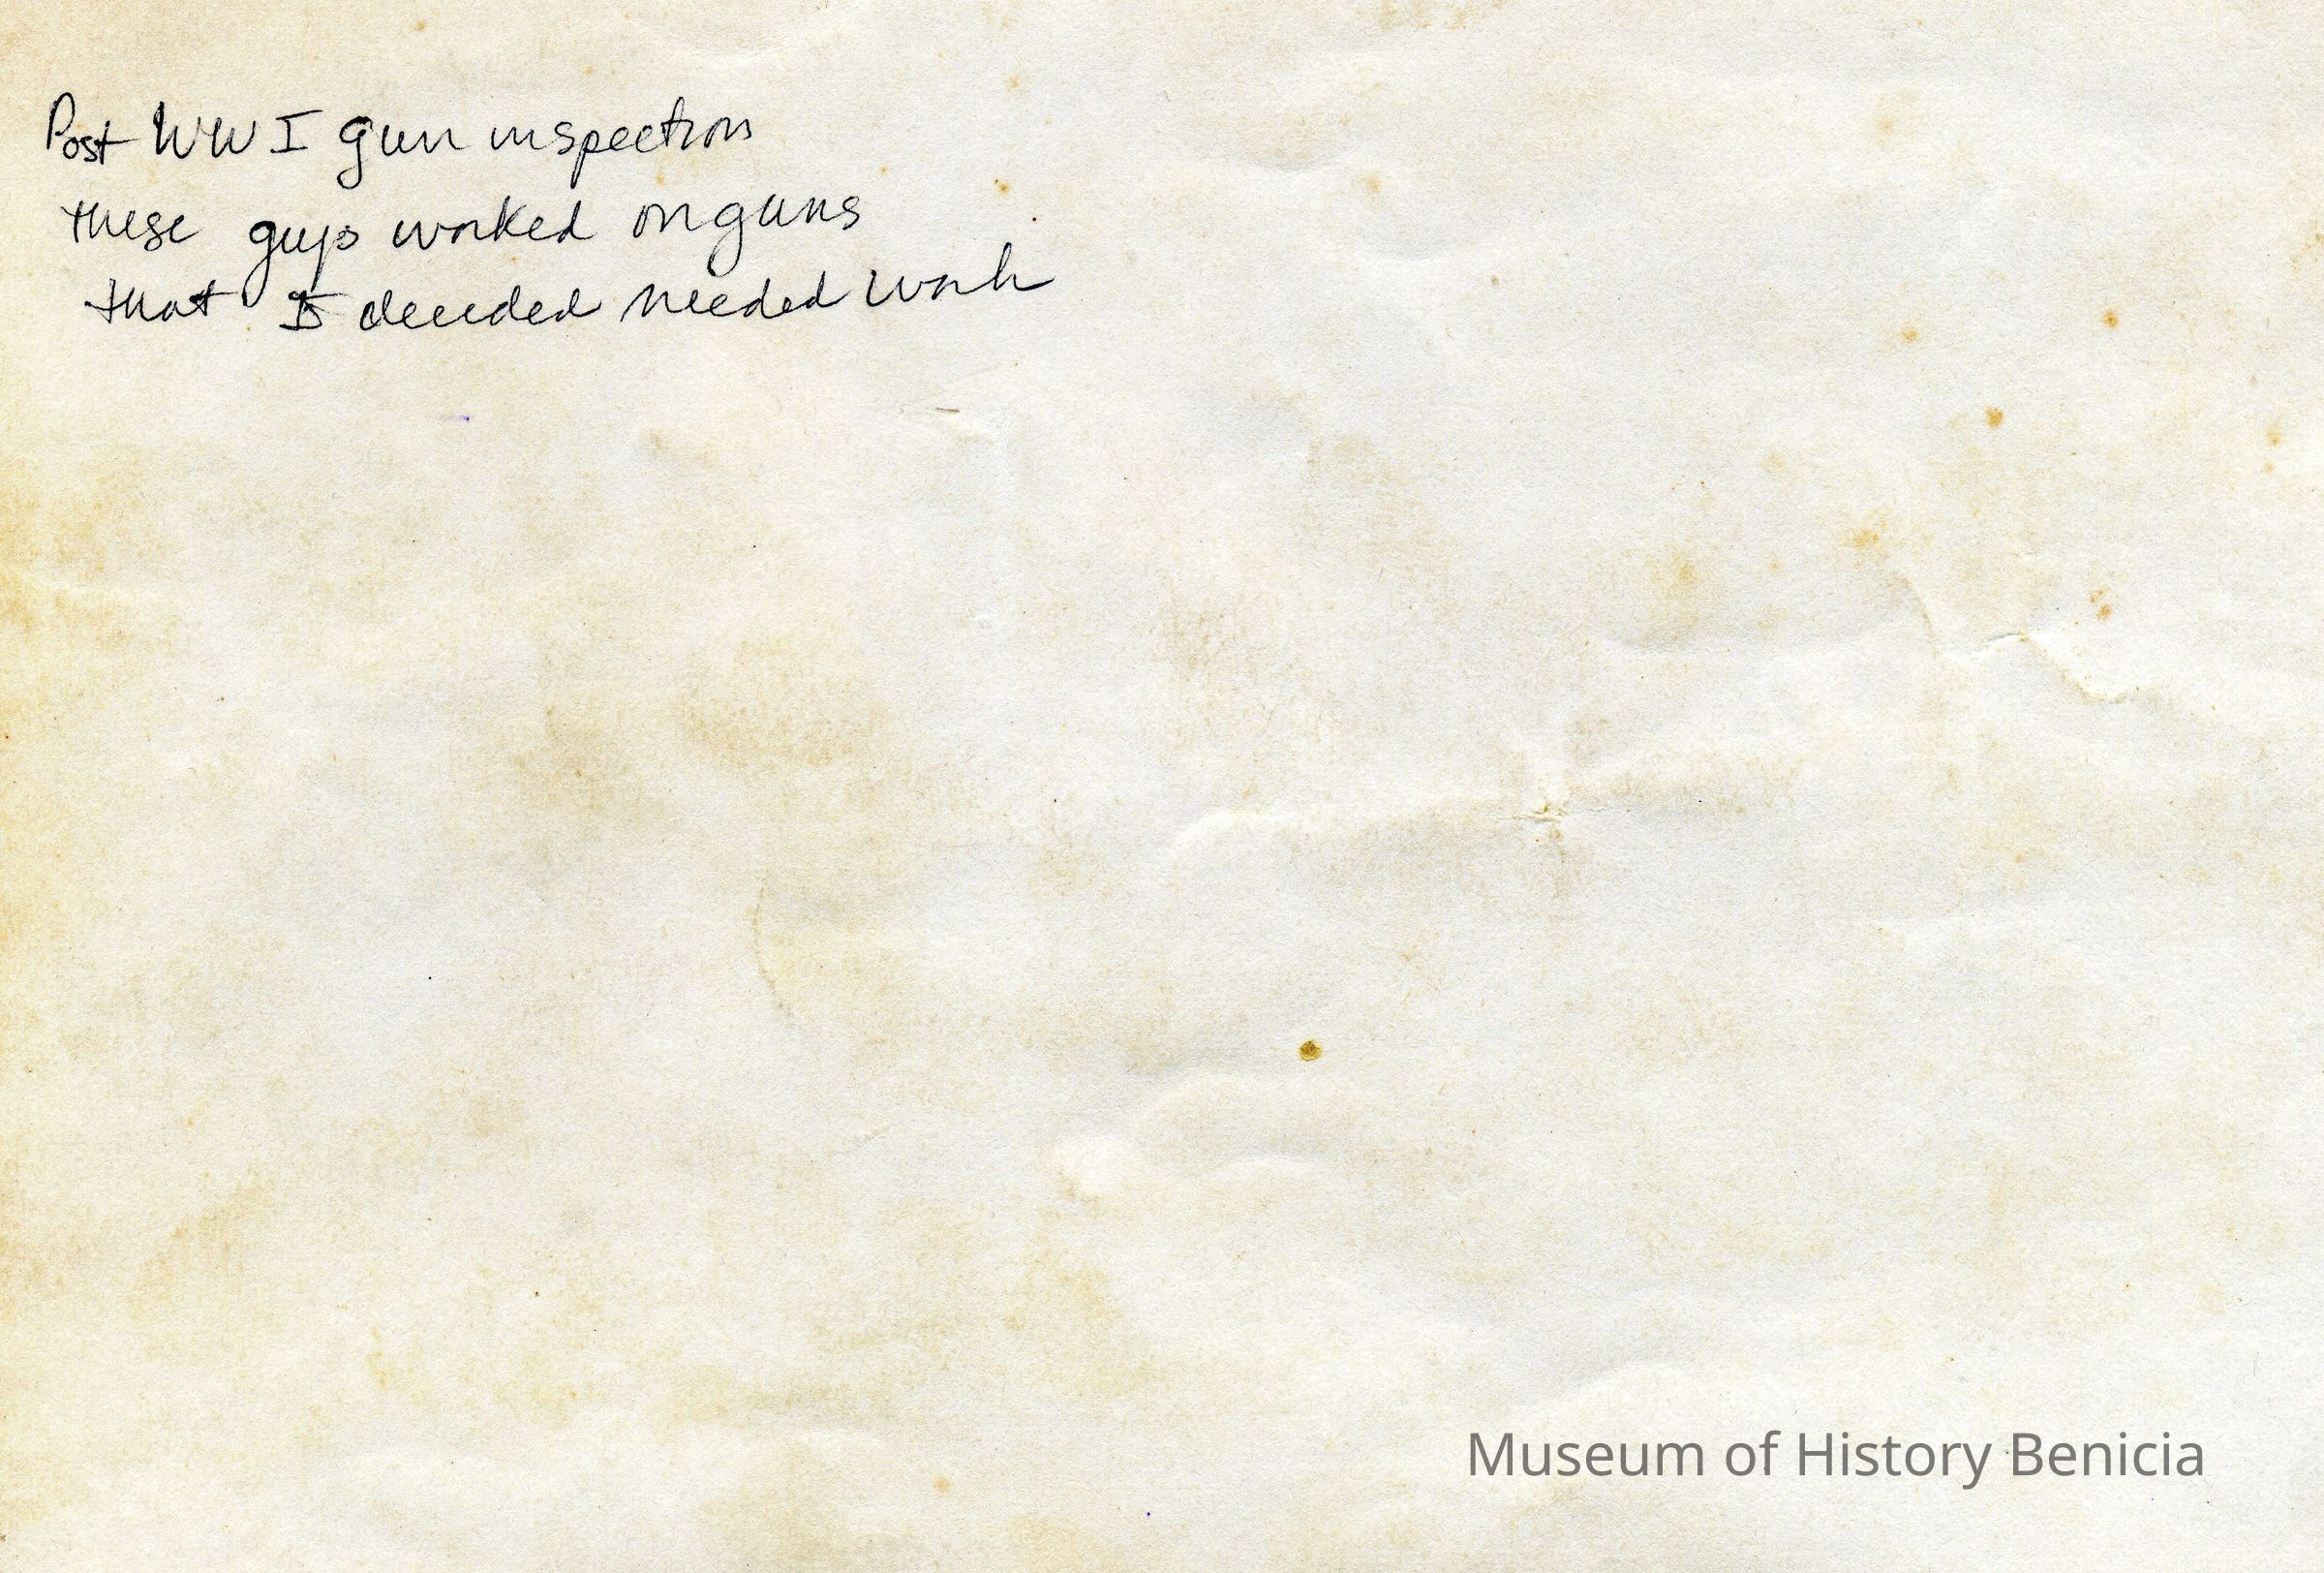 Post WW I gun inspection
these guys worked on guns
that I decided needed work
Museum of History Benicia